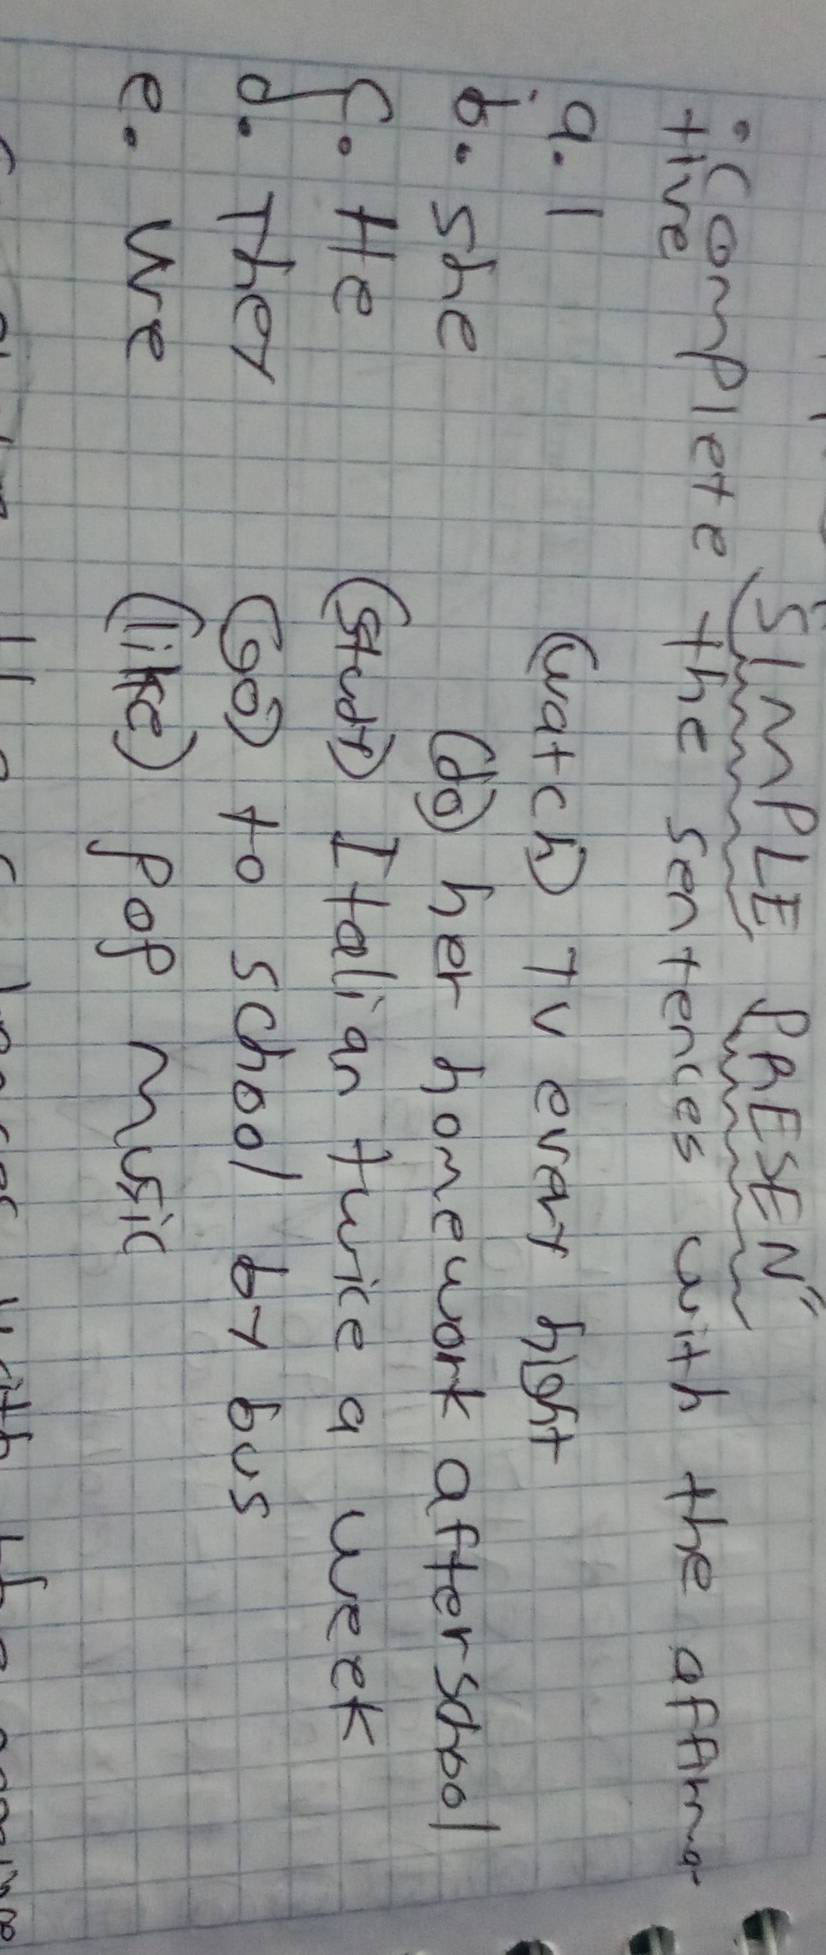 SIMPLE PRESEN
• Complete the sentences with the affirma
tive
a. I (watch) TV every hight
b. she (do) her homework after school
c. He (study) Italian twice a week
d. They (Go) to school by bus
e. we (like) pop music